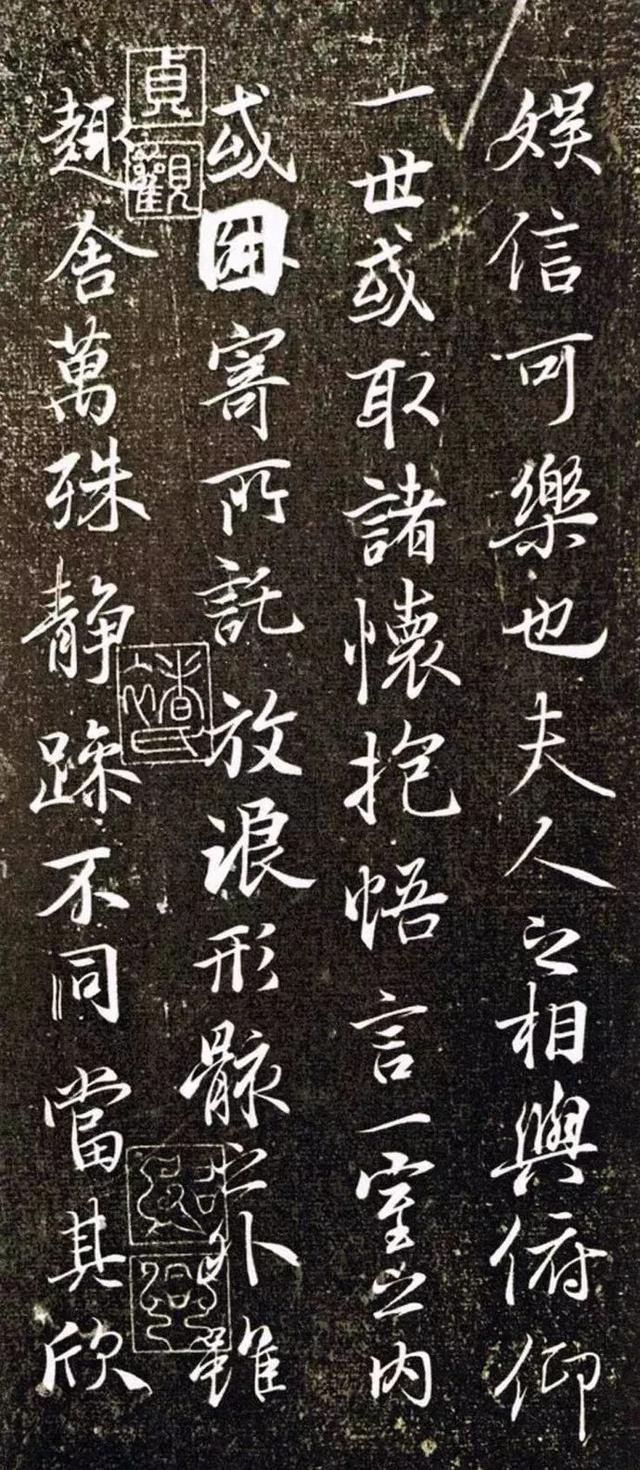 娛信可樂也夫人之相與俯仰
一世或取諸懷抱悟言一室之內
或因寄所託放浪形骸之外雖
趣舍萬殊靜躁不同當其欣
貞觀